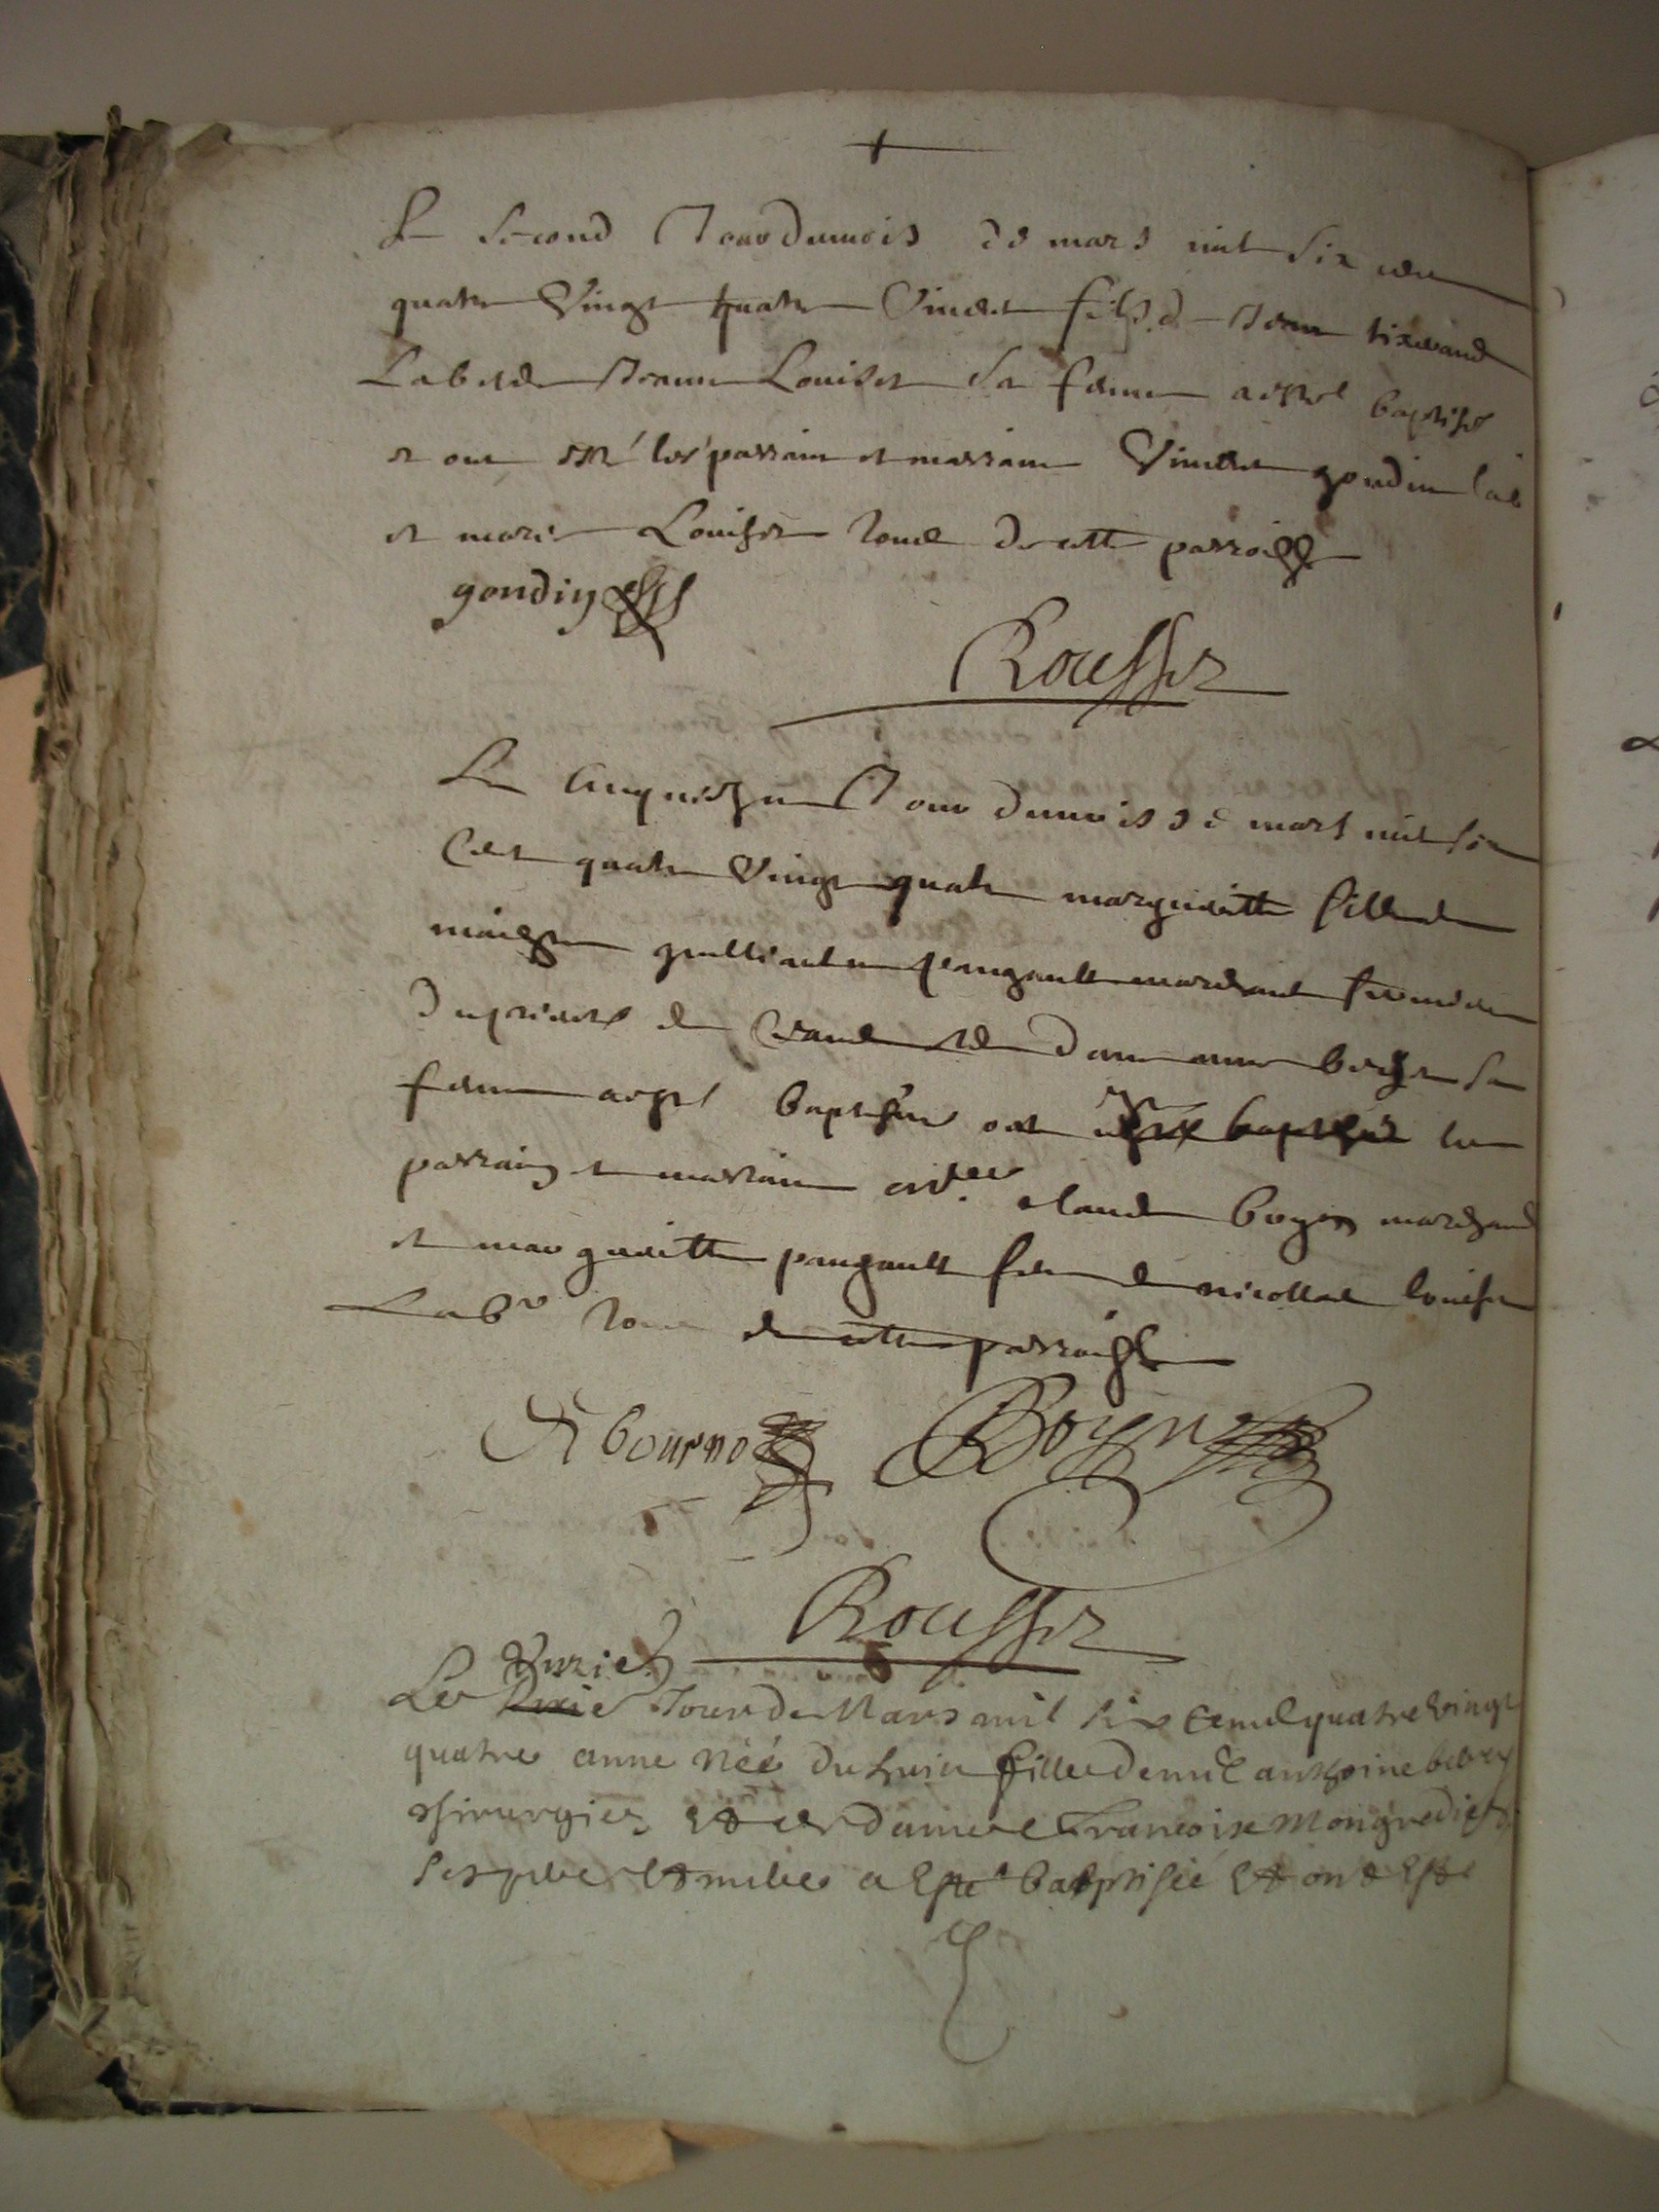 Le second Jour du mois de mars mil six cens
quatre Vingt quatre Vincent fils de Jean
Lab et de Jeanne Louiset sa femme a esté baptisé
et ont esté les parrain et marraine Vincent goudin lab
et marie Louiset tous de cette parroisse
goudin
Rousset
Le Cinquiesme Jour du mois de mars mil six
Cent quatre Vingt quatre margueritte fille de
maistre paugault marchand fermier
du prieuré de et de dame anne sa
femme a esté baptisée ont esté les
parrain et marraine claude boyer marchand
et margueritte paugault femme de nicollas louiset
Labr tous de cette parroisse
bourno Boyer
Rousset
unzie
Le Jour de Mars mil six Cent quatre vingt
quatre anne née du huit fille de mre anthoine
chirurgien Et de dame francoise Mongredien
ses pere Et mere a Esté baptisée Et ont Esté